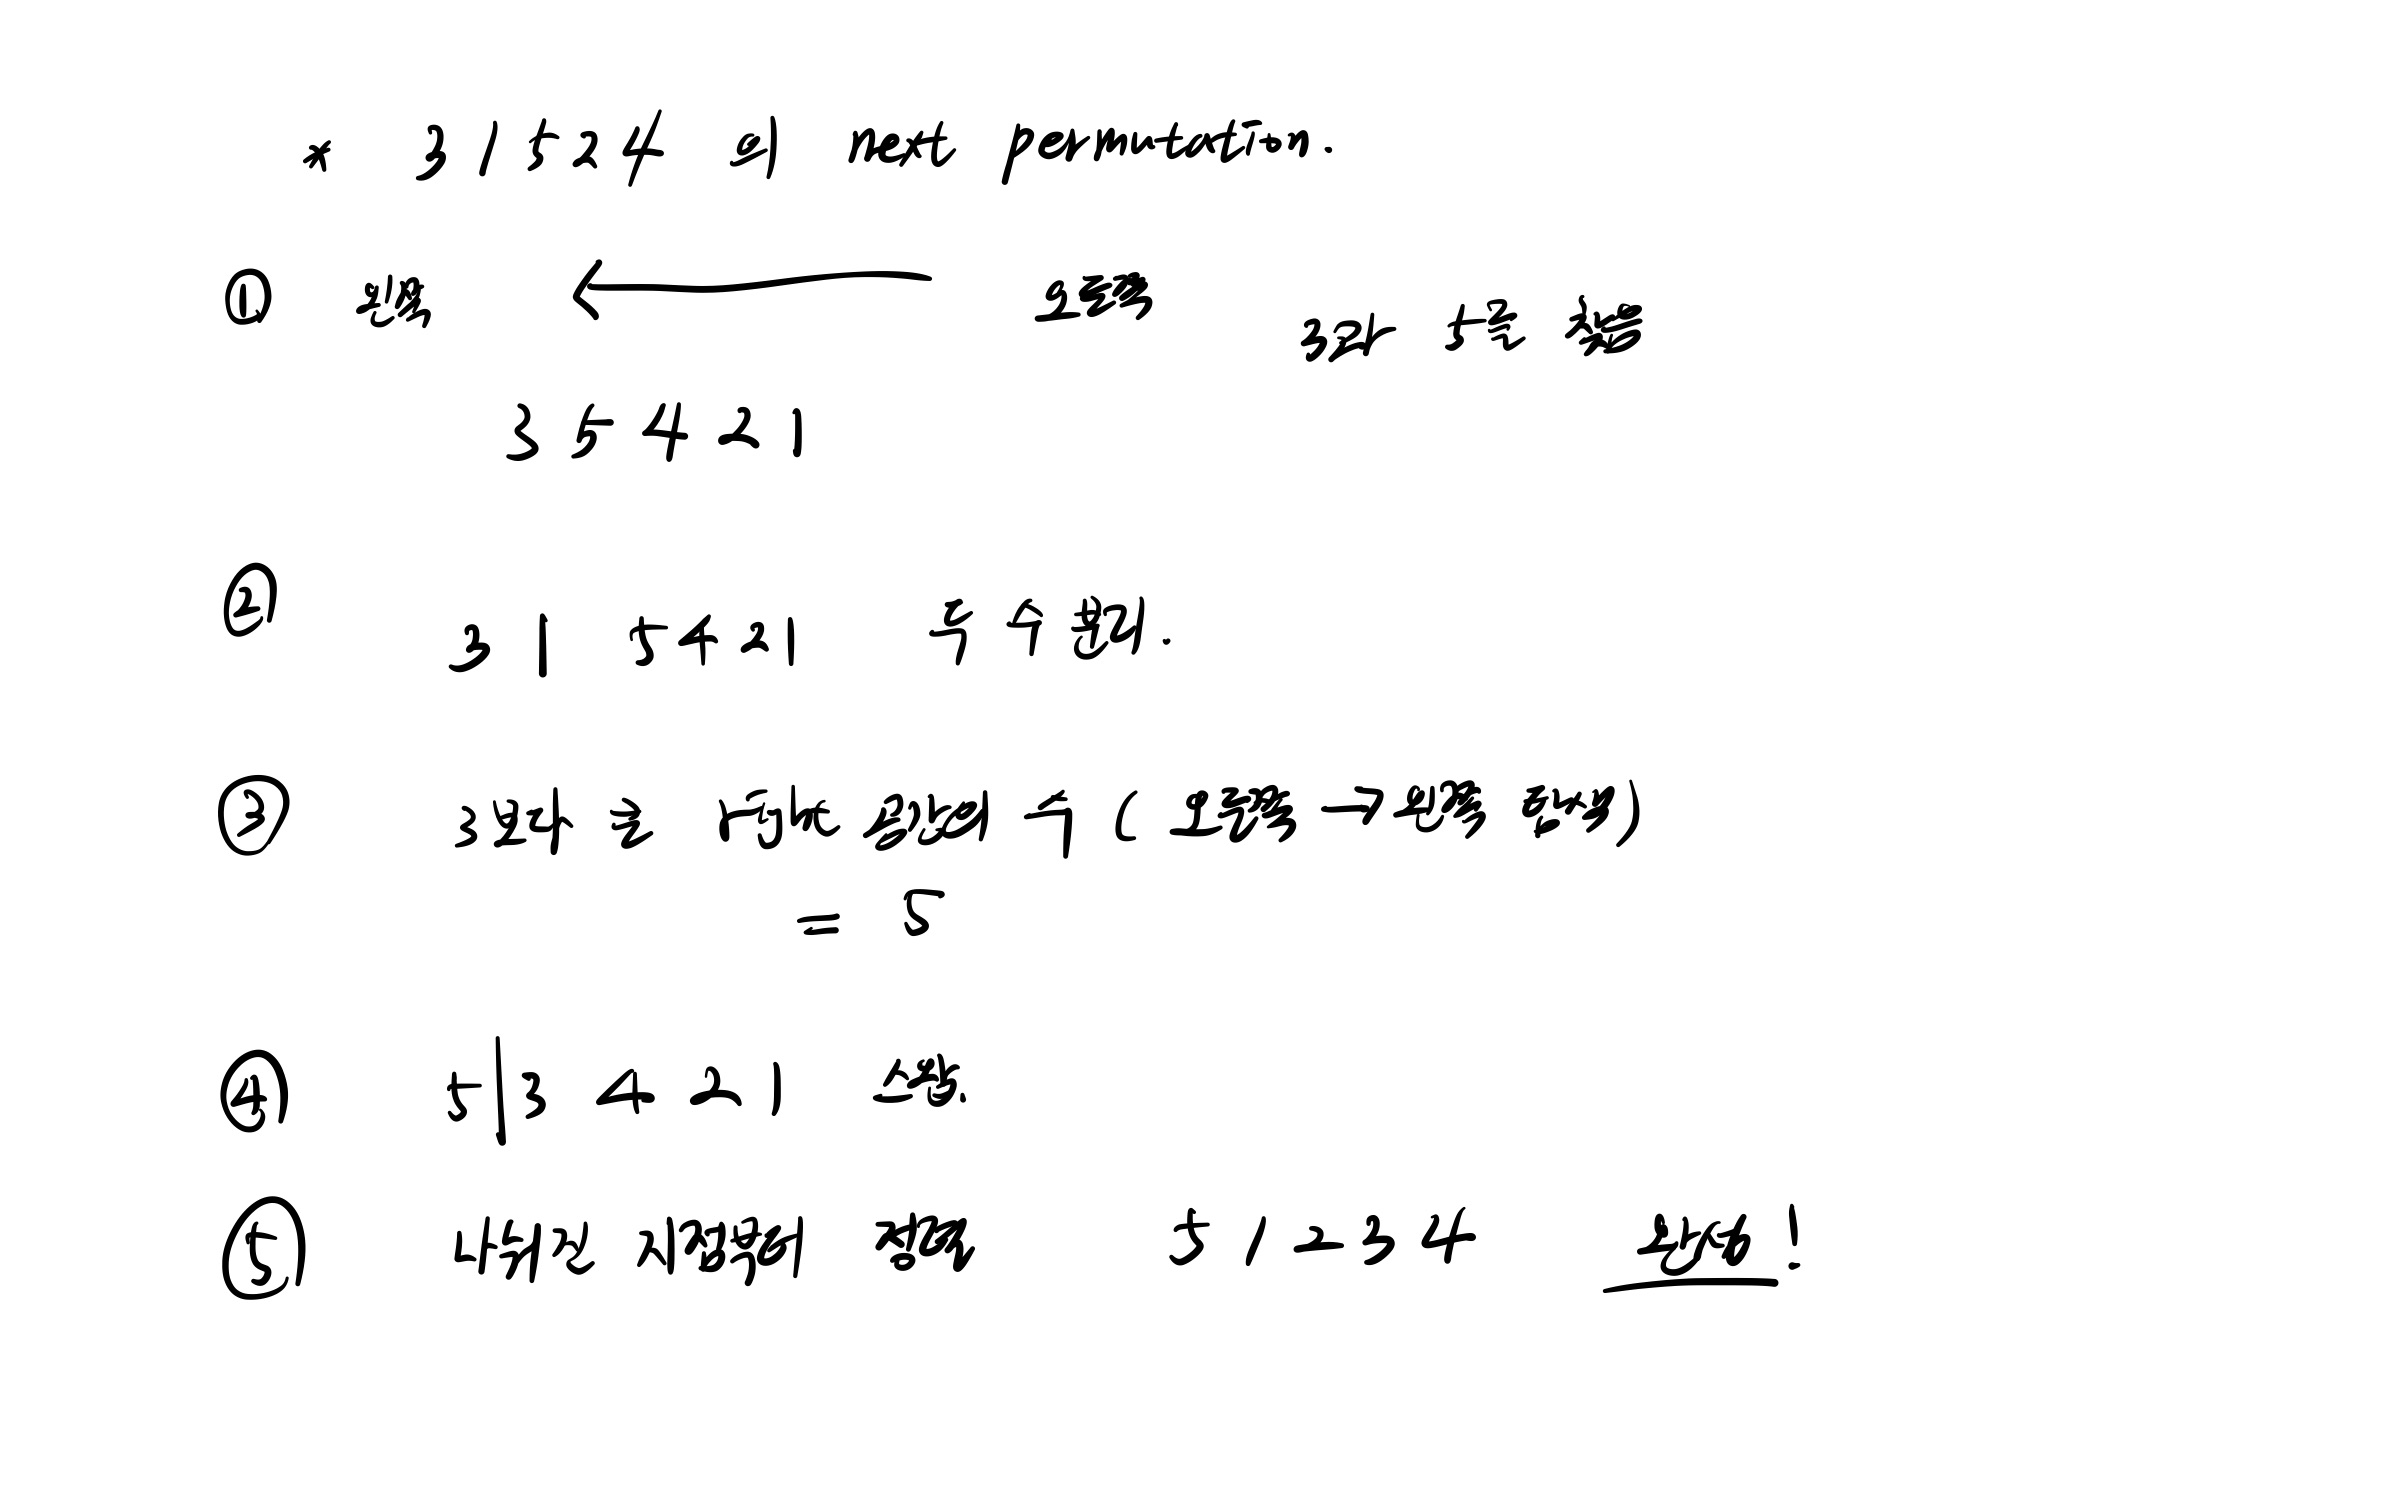 * 31524 의 next permutation.
① 왼쪽 ← 오른쪽 3과 5를 찾음
3 5 4 2 1
② 3 | 5421 두 수 분리.
③ 3보다 큰 첫번째 수 ( 오른쪽 → 왼쪽 탐색)
= 5
④ 5 | 3 4 2 1 스왑.
⑤ 나머진 작은 5 1 2 3 4 완성!